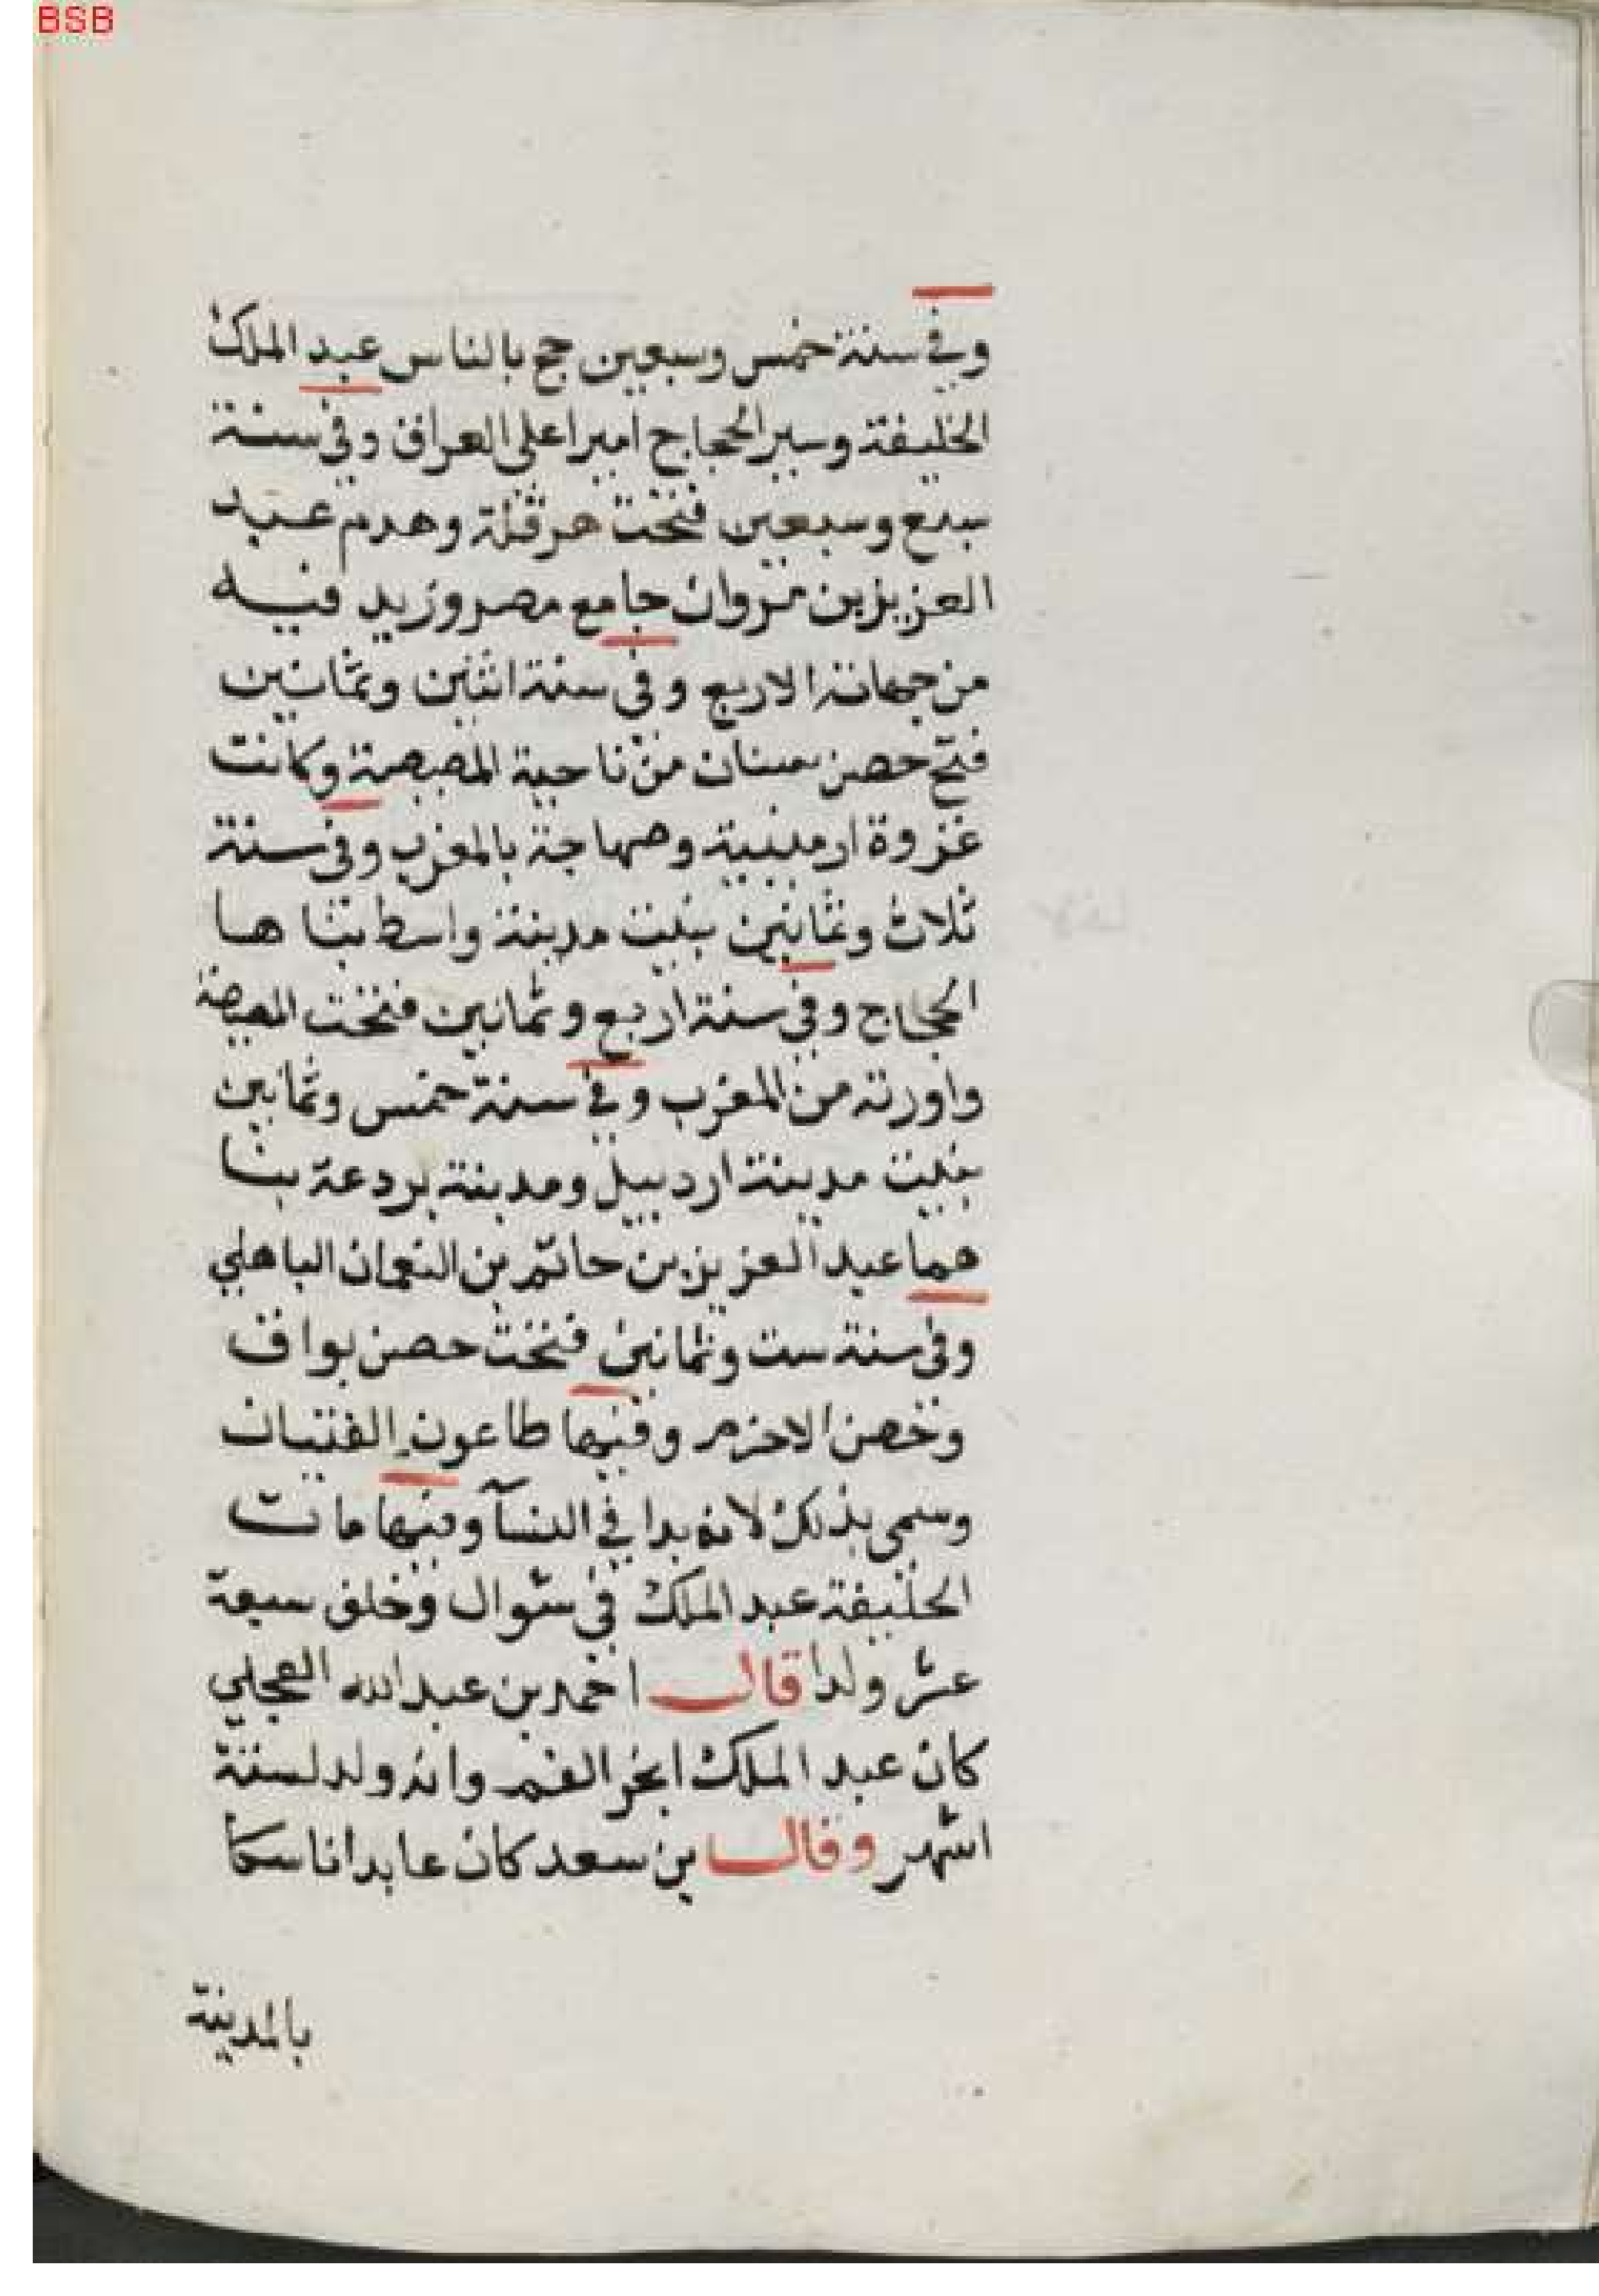 BSB
وفي سنة خمس وسبعين حج بالناس عبد الملك
الخليفة وسير الحجاج اميرا على العراق وفي سنة
سبع وسبعين فتحت هرقلة وهدم عبد
العزيز بن مروان جامع مصر وزيد فيه
من جهاته الاربع وفي سنة اثنين وثمانين
فتح حصن سنان من ناحية المصيصة وكانت
غزوة ارمينية وصهاجة بالمغرب وفي سنة
ثلاث وثمانين بنيت مدينة واسط بنا ها
الحجاج وفي سنة اربع وثمانين فتحت المصيصة
واورنه من المغرب وفي سنة خمس وثمانين
بنيت مدينة اردبيل ومدينة بردعة بنا
هما عبد العزيز بن حاتم بن النعمان الباهلي
وفي سنة ست وثمانين فتحت حصن بواق
وحصن الاخزم وفيها طاعون الفتيات
وسمى بذلك لانه بدا في النسآ وفيها مات
الخليفة عبد الملك في شوال وخلف سبعة
عشر ولدا قال احمد بن عبد الله العجلي
كان عبد الملك ابخر الفم وانه ولد لستة
اشهر وقال بن سعد كان عابدا ناسكا
بالمدينة